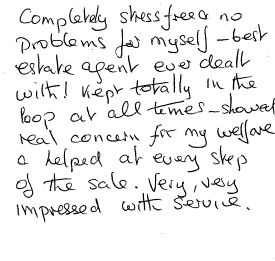 Completely stress free & no
problems for myself - best
estate agent ever dealt
with! Kept totally in the
loop at all times - showed
real concern for my welfare
& helped at every step
of the sale. Very, very
impressed with service.